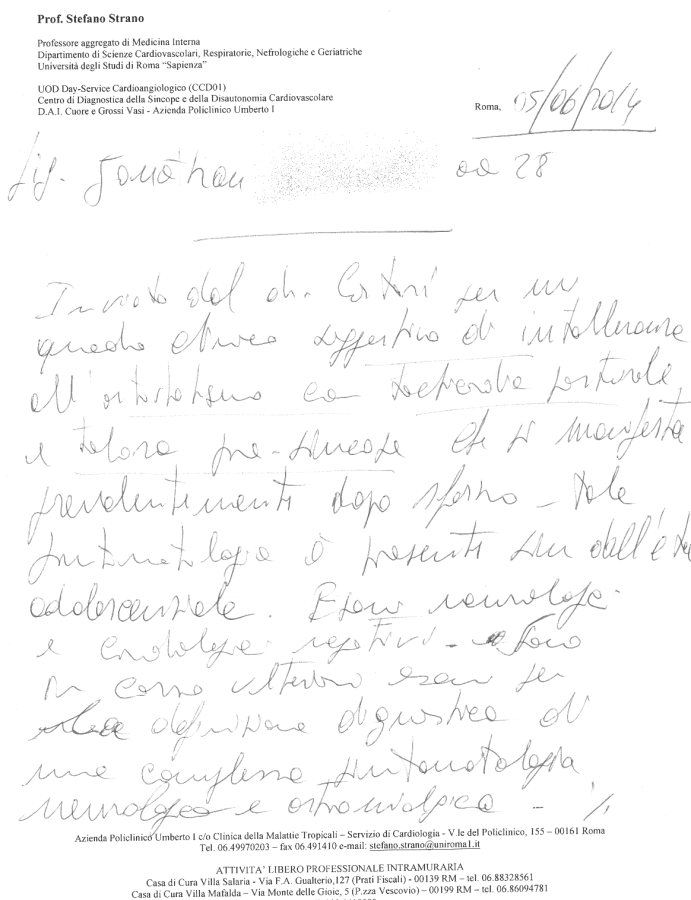 Prof. Stefano Strano
Professore aggregato di Medicina Interna
Dipartimento di Scienze Cardiovascolari, Respiratorie, Nefrologiche e Geriatriche
Università degli Studi di Roma “Sapienza”
UOD Day-Service Cardioangiologico (CCD01)
Centro di Diagnostica della Sincope e della Disautonomia Cardiovascolare
D.A.I. Cuore e Grossi Vasi - Azienda Policlinico Umberto I
Roma, 05/06/2014
Sig. Jonathan aa 28
Inviato dal dr. per un
quadro clinico suggestivo di intolleranza
all'ortostatismo con posturale,
e talora pre-sincope che si manifesta
prevalentemente dopo sforzo - tale
sintomatologia è presente sin dall'età
adolescenziale. Esami neurologici
e cardiologici negativi - Sono
in corso ulteriori esami per
la definizione diagnostica di
una complessa sintomatologia
neurologica e - ./.
Azienda Policlinico Umberto I c/o Clinica della Malattie Tropicali – Servizio di Cardiologia - V.le del Policlinico, 155 – 00161 Roma
Tel. 06.49970203 – fax 06.491410 e-mail: stefano.strano@uniroma1.it
ATTIVITA’ LIBERO PROFESSIONALE INTRAMURARIA
Casa di Cura Villa Salaria - Via F.A. Gualterio,127 (Prati Fiscali) - 00139 RM – tel. 06.88328561
Casa di Cura Villa Mafalda – Via Monte delle Gioie, 5 (P.zza Vescovio) – 00199 RM – tel. 06.86094781